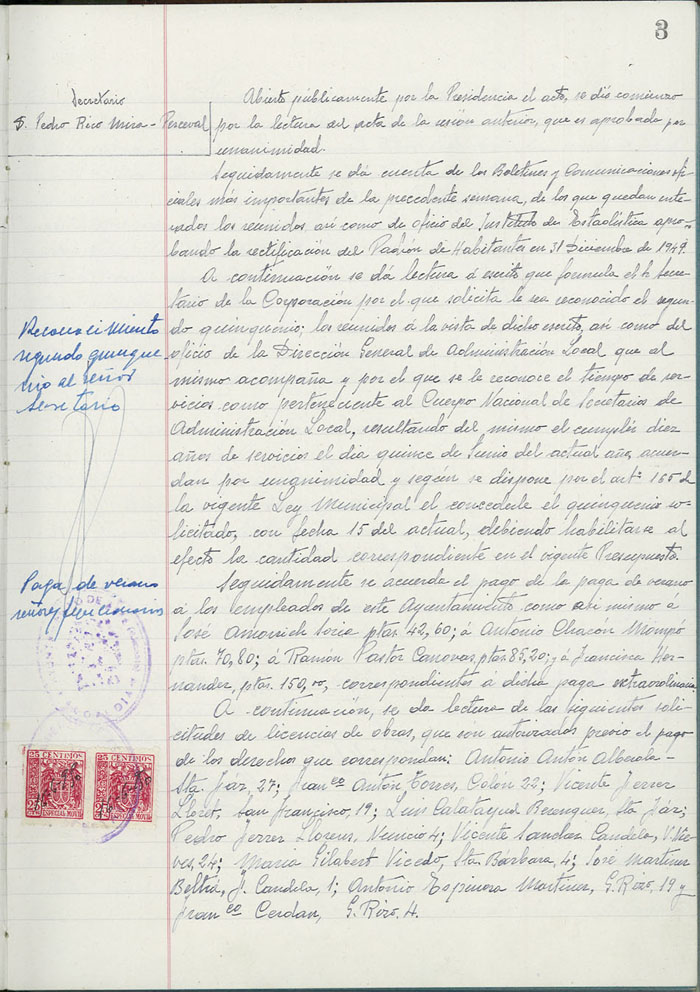 3
Secretario
D. Pedro Rico Mira-Perceval
Abierto públicamente por la Presidencia el acto, se dió comienzo
por la lectura del acta de la sesión anterior, que es aprobada por
unanimidad.
Seguidamente se dá cuenta de los Boletines y Comunicaciones ofi-
ciales más importantes de la precedente semana, de los que quedan ente-
rados los reunidos así como de oficio del Instituto de Estadística apro-
bando la rectificación del Padrón de Habitantes en 31 Diciembre de 1949.
A continuación se dá lectura á escrito que formula el Secre-
tario de la Corporación por el que solicita le sea reconocido el segun-
do quinquenio; los reunidos á la vista de dicho escrito, así como del
oficio de la Dirección General de Administración Local que al
mismo acompaña y por el que se le reconoce el tiempo de ser-
vicios como perteneciente al Cuerpo Nacional de Secretarios de
Administración Local, resultando del mismo el cumplir diez
años de servicios el dia quince de Junio del actual año, acuer-
dan por unanimidad y según se dispone por el artº 165 de
la vigente Ley Municipal el concederle el quinquenio so-
licitado, con fecha 15 del actual, debiendo habilitarse al
efecto la cantidad correspondiente en el vigente Presupuesto.
Seguidamente se acuerda el pago de la paga de verano
á los empleados de este Ayuntamiento como asi mismo á
José Amorich Soria ptas. 42,60; á Antonio Chacón Mompó
ptas. 70,80; á Ramón Pastor Canovas, ptas. 85,20; y á Francisca Her-
nandez, ptas. 150,00, correspondientes á dicha paga extraordinaria.
A continuación, se da lectura de las siguientes soli-
citudes de licencias de obras, que son autorizadas previo el pago
de los derechos que correspondan: Antonio Antón Alberola-
Sta. Fáz, 27; Franco Antón Torres, Colón 22; Vicente Ferrer
Lloret, San Francisco, 19; Luis Calatayud Berenguer, Sta Fáz;
Pedro Ferrer Llorens, Nuncio 4; Vicente Sanchez Candela,
24; Maria Gilabert Vicedo, Sta. Bárbara, 4; José Martinez
Beltrá, J. Candela, 1; Antonio Espinosa Martinez, G. Rizo, 19 y
Franco Cerdan, G. Rizo, 4.
Reconocimiento
segundo quinque
nio al señor
Secretario
Paga de verano
señores funcionarios
25 CENTIMOS
ESPECIAL MOVIL
25 CENTIMOS
ESPECIAL MOVIL